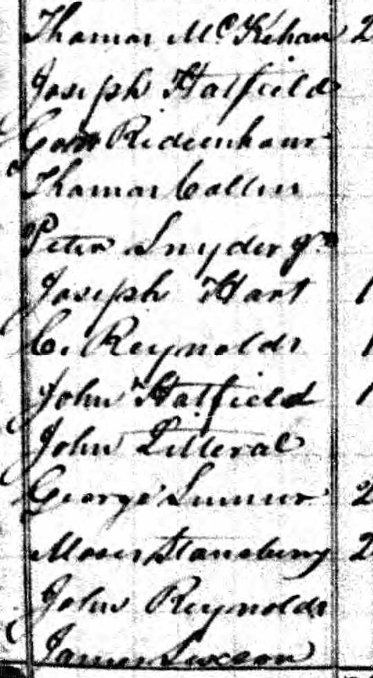 Thomas McKehan 2
Joseph Hatfield
Ridenhour
Thomas Collins
Peter Snyder Jr
Joseph Hart 1
C. Reynolds 1
John Hatfield 1
John Litteral
George Sumer 2
Moses Stansbury 2
John Reynolds
James